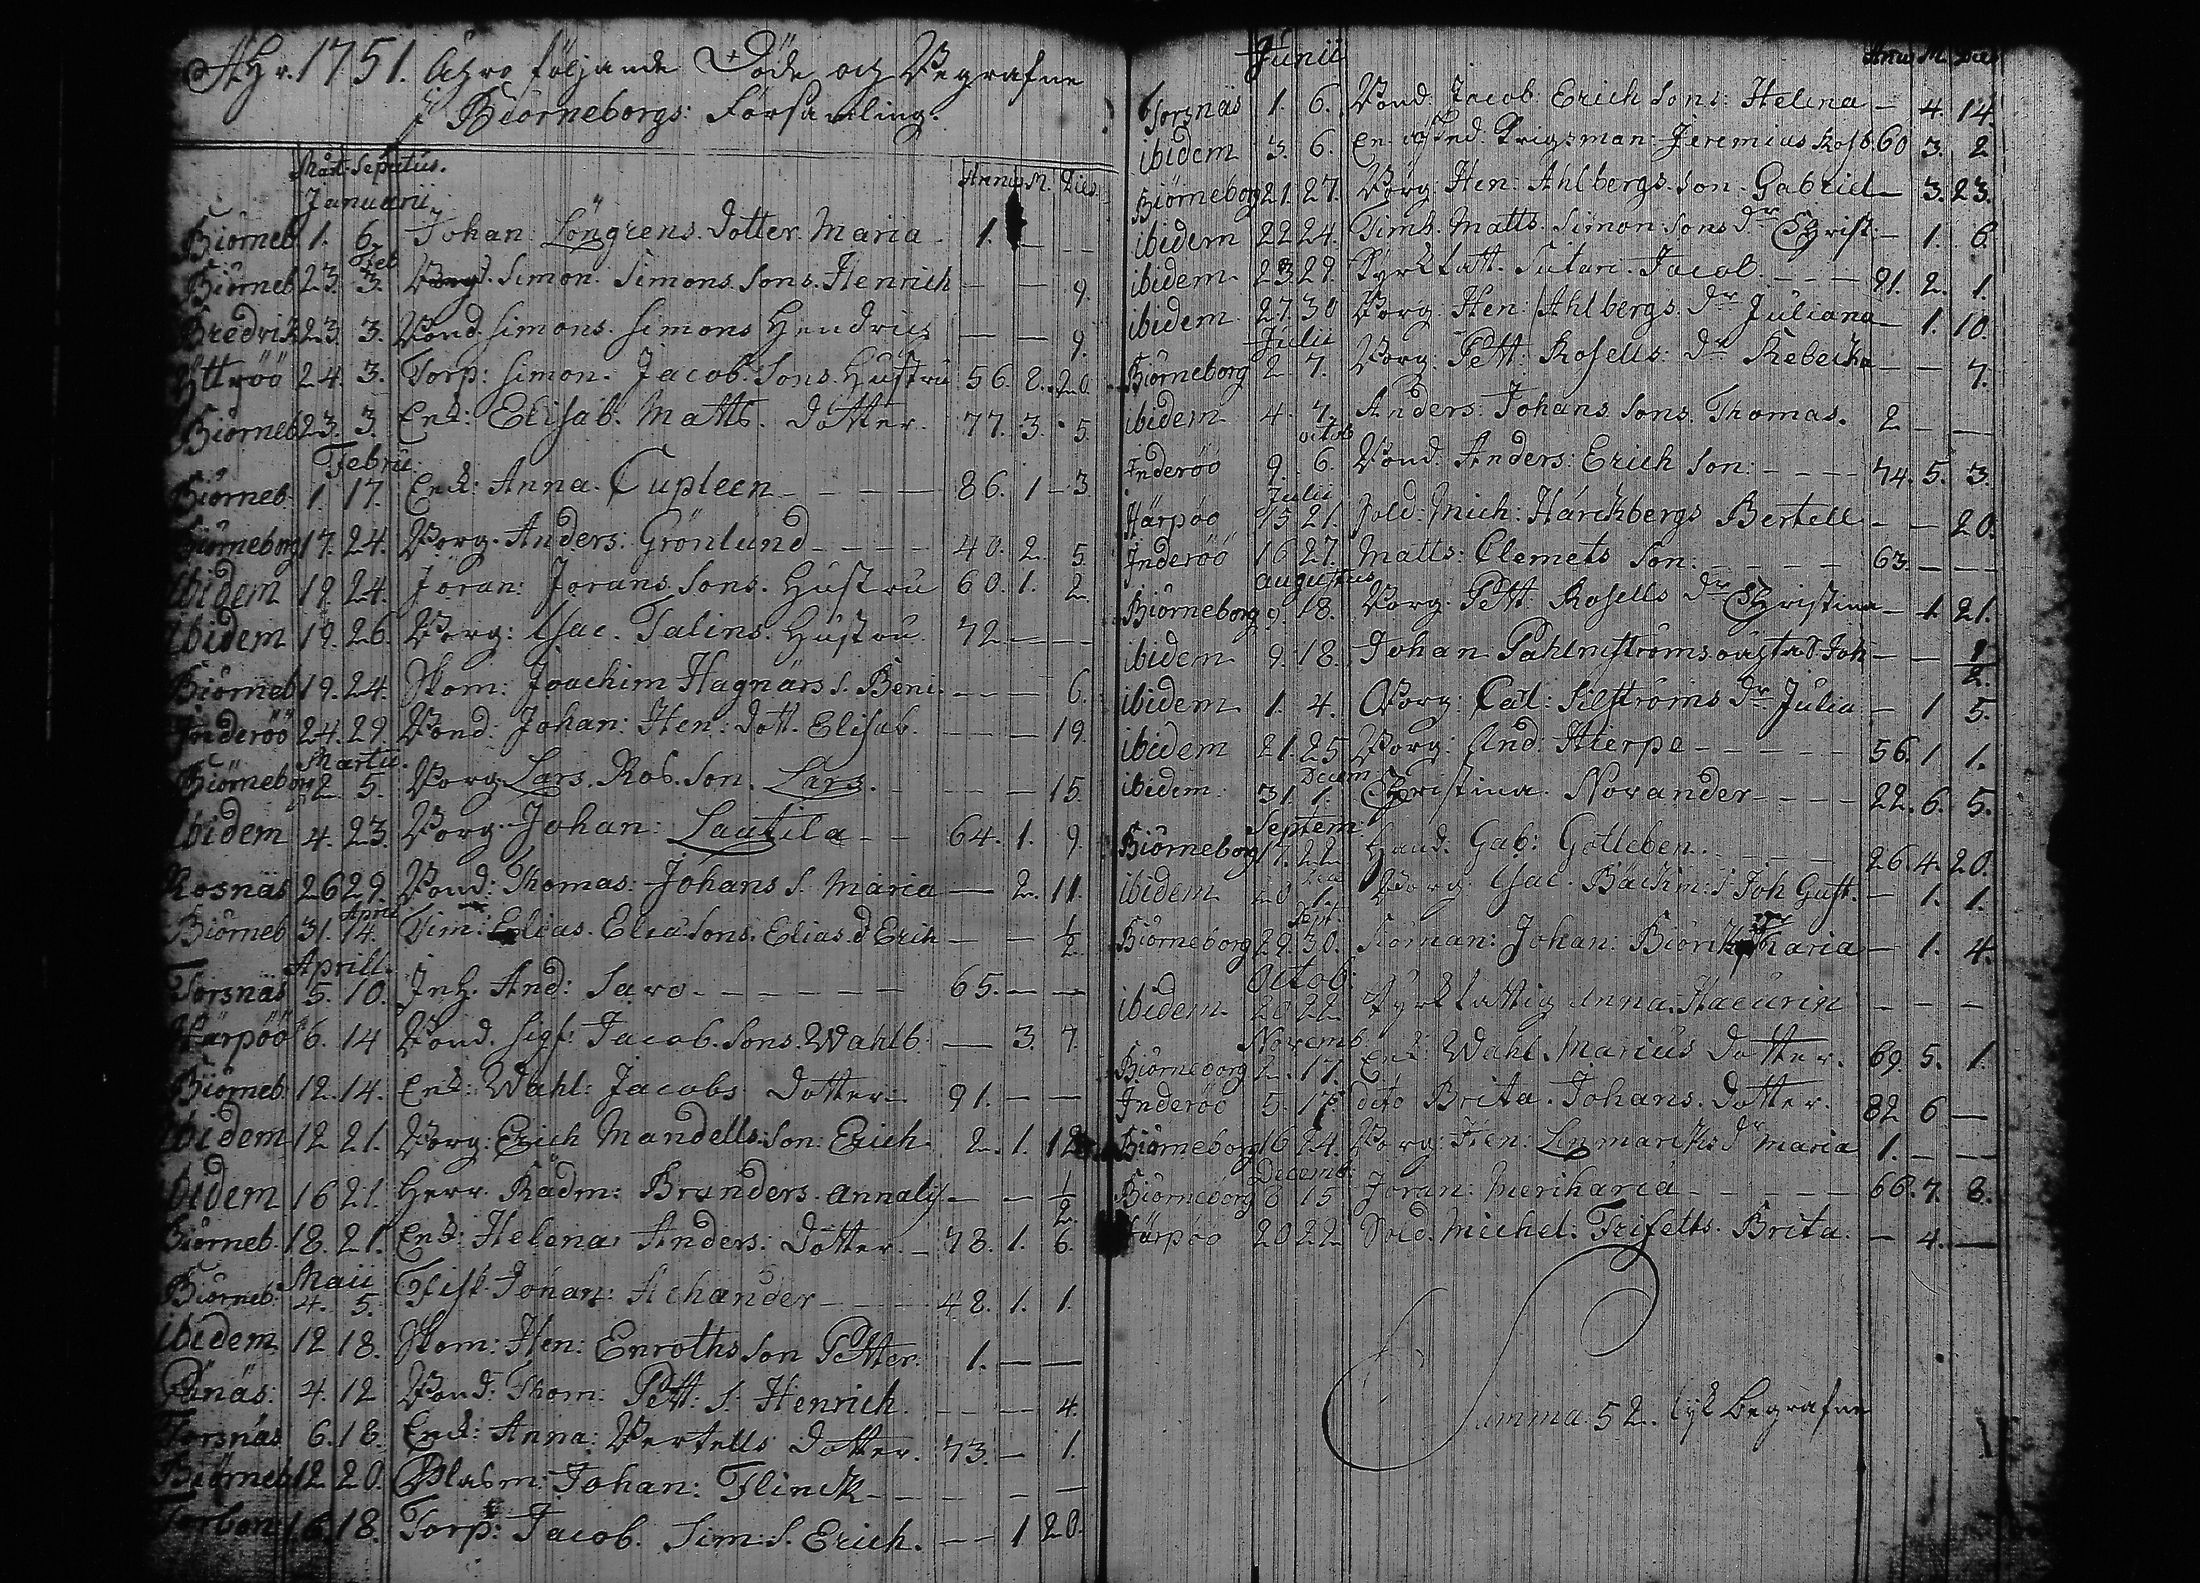 Åhr. 1751. Ähro följande Döde och Begrafne
i Biörneborgs: Församling.
Mort. Sepultus. Annus M. Dies
Januarii
Biörneb. 1. 6. Johan: Löngrens. dotter. Maria 1. — —
Feb
Biörneb. 23. 3. Borg. Simon. Simons. Sons. Henrich — — 9.
Bredvik 23. 3. Bond. Simons. Simons Hendric — — 9.
Yttröö 24. 3. Torp: Simon. Jacob. Sons. Hustru 56. 8. 20.
Biörneb 23. 3. Enk: Elisab. Matts. dotter. 77. 3. 5.
Febru:
Biörneb. 1. 17. Enk: Anna. Cupleen — — — 86. 1 - 3
Biörneborg 17. 24. Borg. Anders: Grönlund — — — 40. 2. 5.
Ibidem 19. 24. Jöran: Jorans. Sons. Hustru 60. 1. 2.
Ibidem 19. 26. Borg: Isac. Talins. Hustru. 72. — —
Biörneb 19. 24. Skom: Joachim Hagnärs s. Beni. — — — 6.
Inderöö 24. 29. Bond: Johan: Hen: dott. Elisab. — — — 19.
Martii.
Biörneborg 2 5. Borg Lars. Ros. Son. Lars. — — — 15.
Ibidem 4. 23. Borg. Johan: Lautila — — 64. 1. 9.
Rosnäs 26 29. Bond: Thomas: Johans s. Maria — 2. 11.
April
Biörneb 31. 14. Tim: Elias. Elia Sons. Elias. d Erich — — 1/2
Aprill.
Torsnäs 5. 10. Inh. And: Saro — — — — 65. — —
Härpöö 6. 14 Bond. Sigf: Jacob. Sons. Wahlb. — 3. 7.
Biörneb. 12. 14. Enk: Wahl: Jacobs dotter: 91. — —
Ibidem 12 21. Borg: Erich Mandells: Son: Erich. 2. 1. 12
Ibidem 16 21. Herr. Rådm: Branders. Annalis — — 1/2
Biörneb. 18. 21. Enk: Helena: Anders: dotter. — 78. 1. 6.
Maii
Biörneb. 4. 5. Fisk. Johan: Achander — — — 48. 1. 1.
Ibidem 12 18. Skom: Hen: Enroths son Petter. 1. — —
Pånäs: 4. 12 Bond: Thom: Pett: s. Henrich. — — 4.
Torsnäs 6. 18. Enk: Anna: Bertells dotter. 73. — 1.
Biörneb 12 20. Glasm: Johan: Flinck — — — —
16. 18. Torp: Jacob. Sim: s. Erich. — — 1 20.
Junii Annus M. Dies
Torsnäs 1. 6. Bond. Jacob Erich Sons: Helena — 4. 14.
ibidem 3. 6. En Krigsman: Jeremias Ros 60 3. 2
Biörneborg 21. 27. Borg: Hen: Ahlbergs. Son. Gabriel — 3. 23.
ibidem 22 24. Timb. Matts. Simon Sons dr Christ: — 1. 6.
ibidem 23 29. Kyrkfatt. Sutare. Jacob. — — — 81. 2. 1.
ibidem 27. 30 Borg. Hen: Ahlbergs. dr Juliana — 1. 10.
Julii
Biörneborg 2 7. Borg. Pett: Rosells. dr Rebecka — — 7.
ibidem 4. 7. Anders. Johans. Sons. Thomas. 2 — —
octob
Inderöö 9. 6. Bond. Anders: Erich Son: — — — 74. 5. 3.
Julii
Härpöö 15 21. Sold: Mich: Härckbergs Bertell — — 20.
Inderöö 16 27. Matts: Clemets Son: — — — 63 — —
Augustus
Biörneborg 9. 18. Borg. Pett: Rosells dr Christina — 1. 21.
ibidem 9. 18. Johan Pahlmströms Joh — — 1/2.
ibidem 1. 4. Borg: Carl: Silströms dr Julia — 1 5.
ibidem 21. 25 Borg: And: Hierpe — — — — 56. 1 1.
Decem
ibidem 31. 1. Christina. Norander — — — 22. 6. 5.
Septem:
Biörneborg 17. 22 Hand: Gab: Gotleben. — — — 26. 4. 20.
ibidem 20 1. Borg. Isac. Bäckm: s Joh Gust. — 1. 1.
Sept.
Biörneborg 29. 30. Johan: Maria — 1. 4.
Octob:
ibidem 20 22 Kyrkfattig Anna. — — —
Novemb
Biörneborg 2. 17. Enk: Wahl. Marcus dotter. 69. 5. 1.
Inderöö 5. 17. dito Brita. Johans. dotter. 82 6 —
Biörneborg 16 24. Borg: Hen: Lenmarcks dr Maria 1. — —
Decemb:
Biörneborg 8 15 Joran: Merikaria — — — — 68. 7. 8.
Härpöö 20 22 Sold. Michel: Trisells. Brita. — 4. —
Summa 52. lyk begrafne